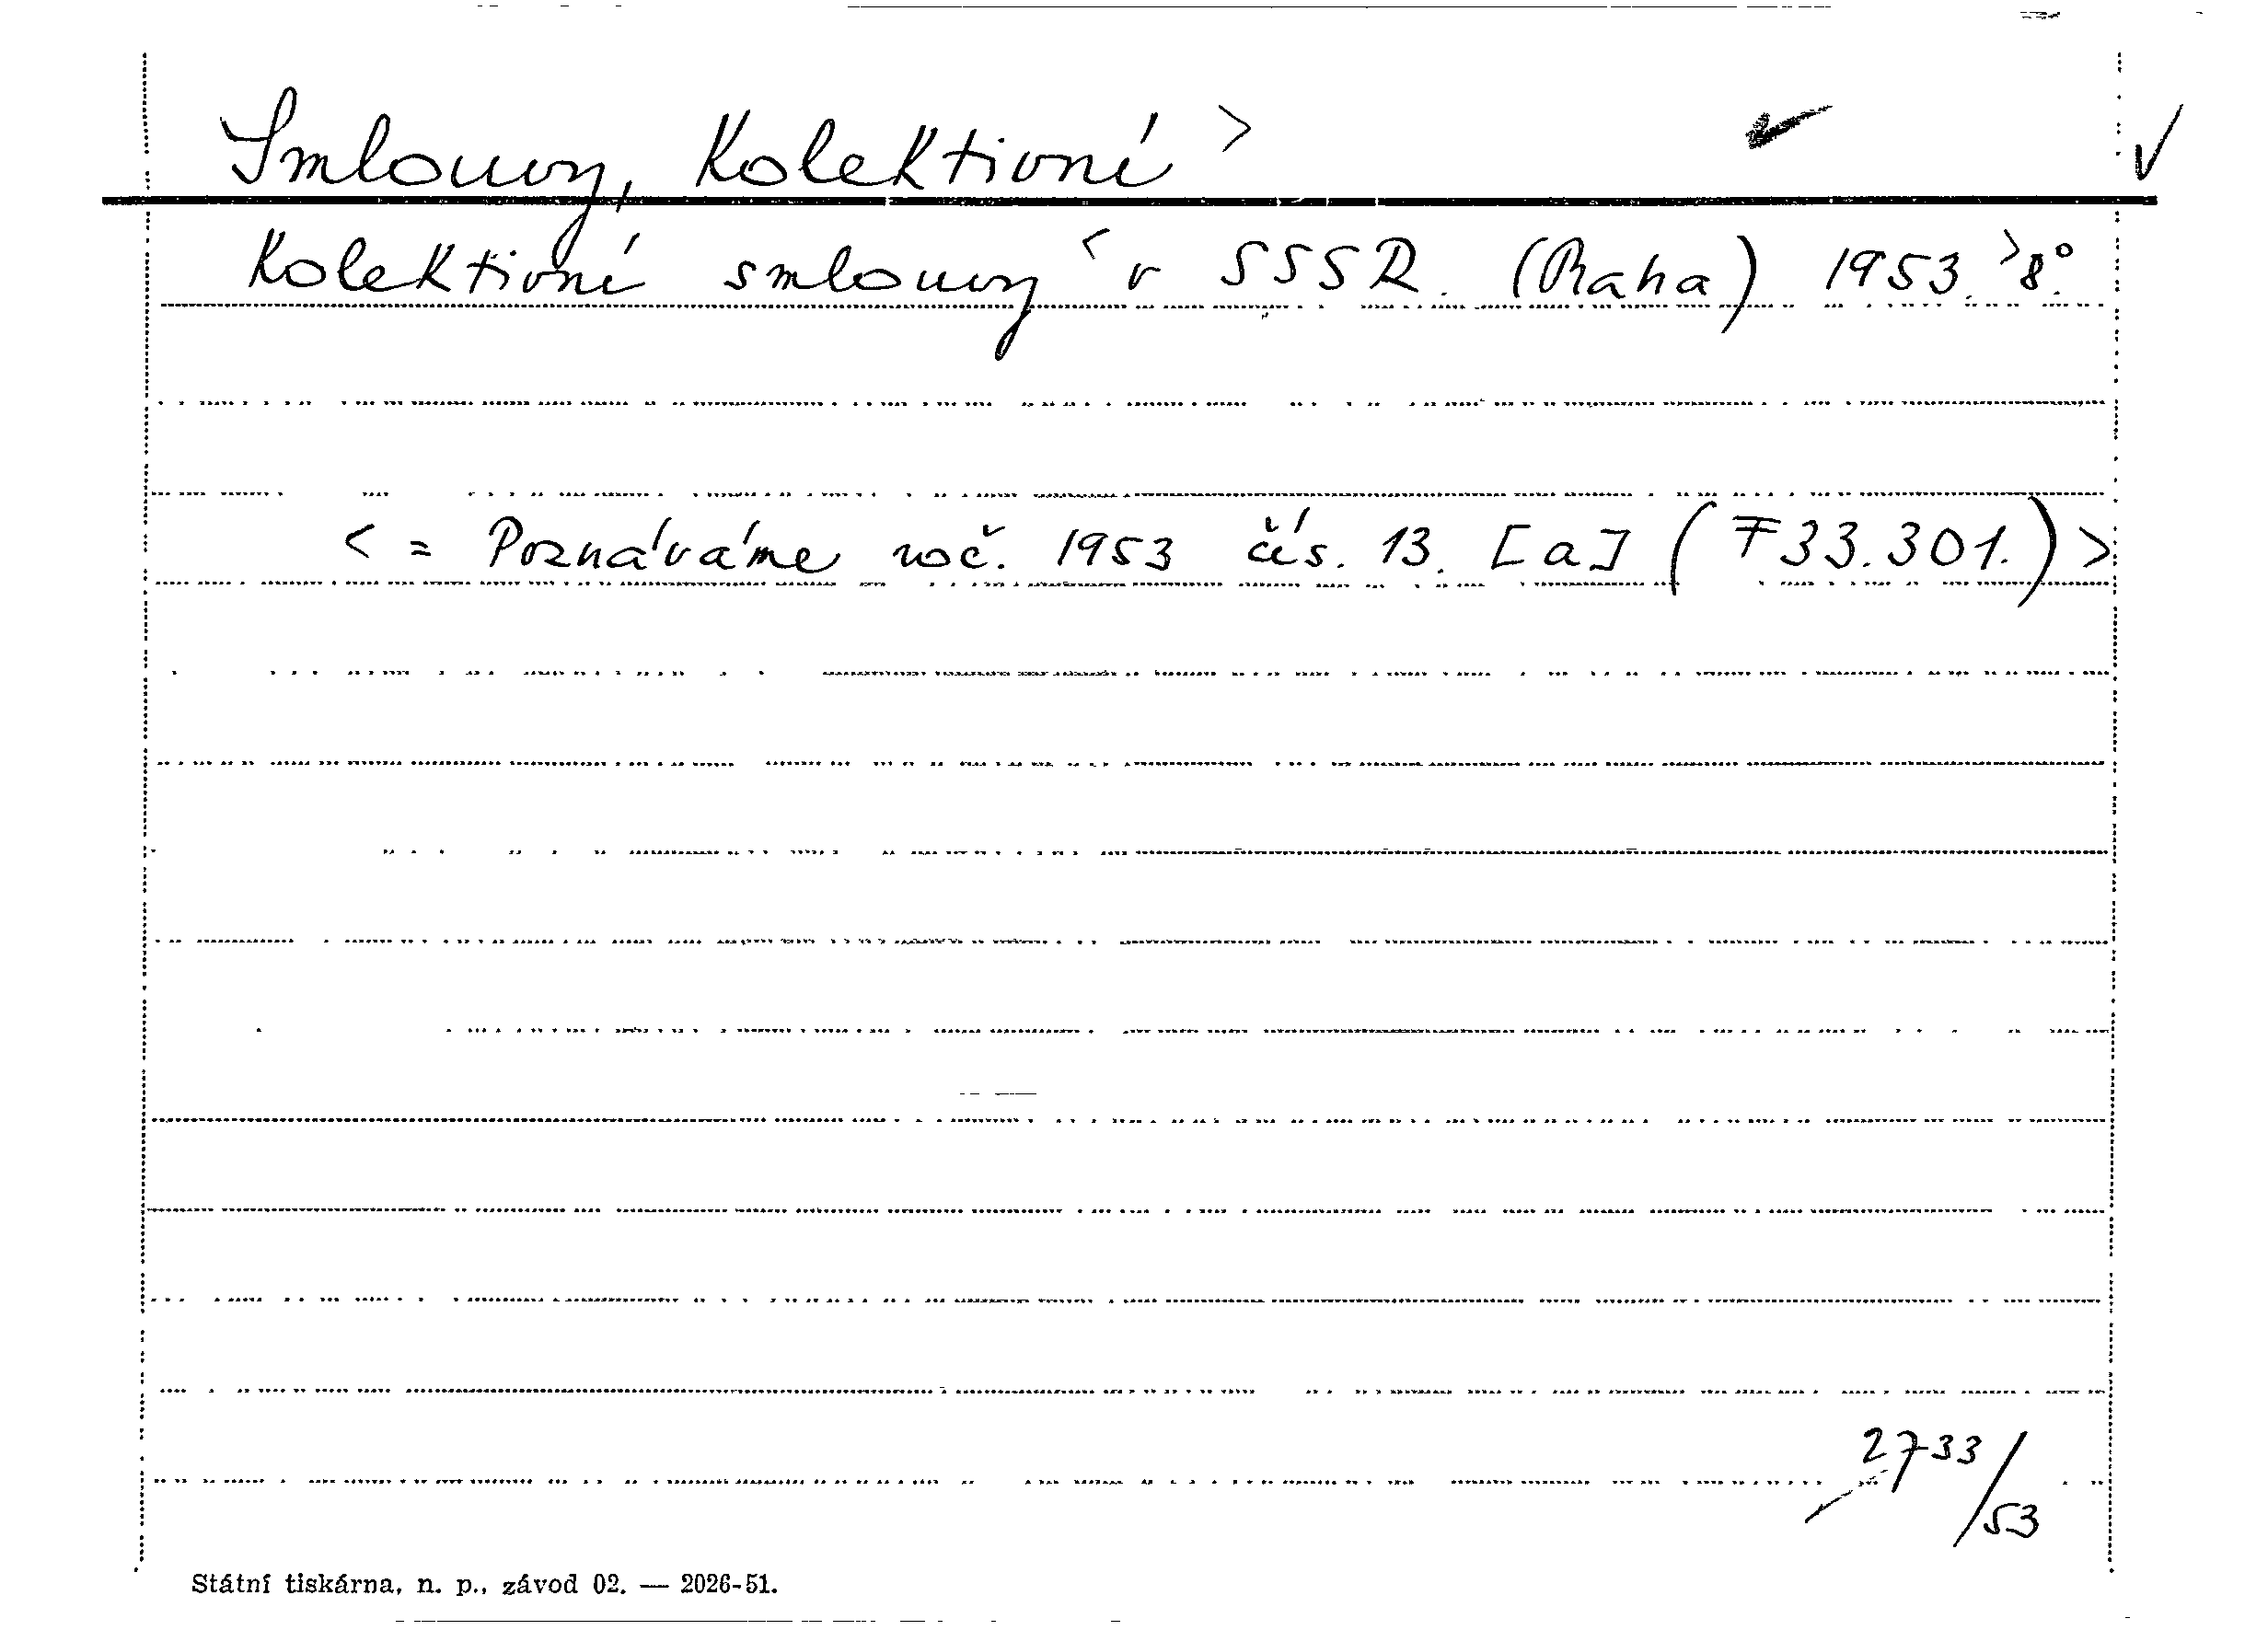 Smlouvy, Kolektivní >
Kolektivní smlouvy < v SSSR. (Praha) 1953. > 8°.
< = Poznáváme roč. 1953 čís. 13. [a] (F 33.301.) >
2733/53
Státní tiskárna, n. p., závod 02. — 2026-51.